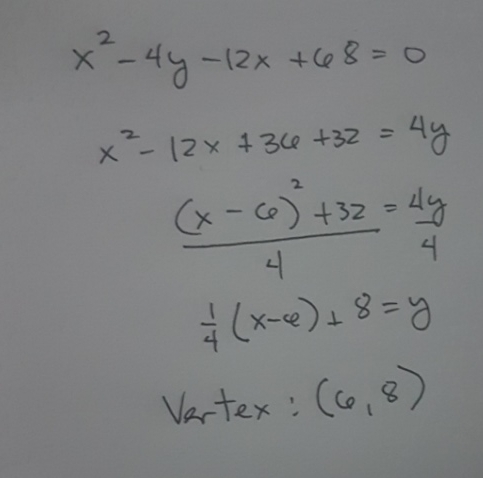 x² - 4y - 12x + 68 = 0
x² - 12x + 36 + 32 = 4y
(x - 6)² + 32 / 4 = 4y / 4
1/4 (x-6) + 8 = y
Vertex : (6, 8)